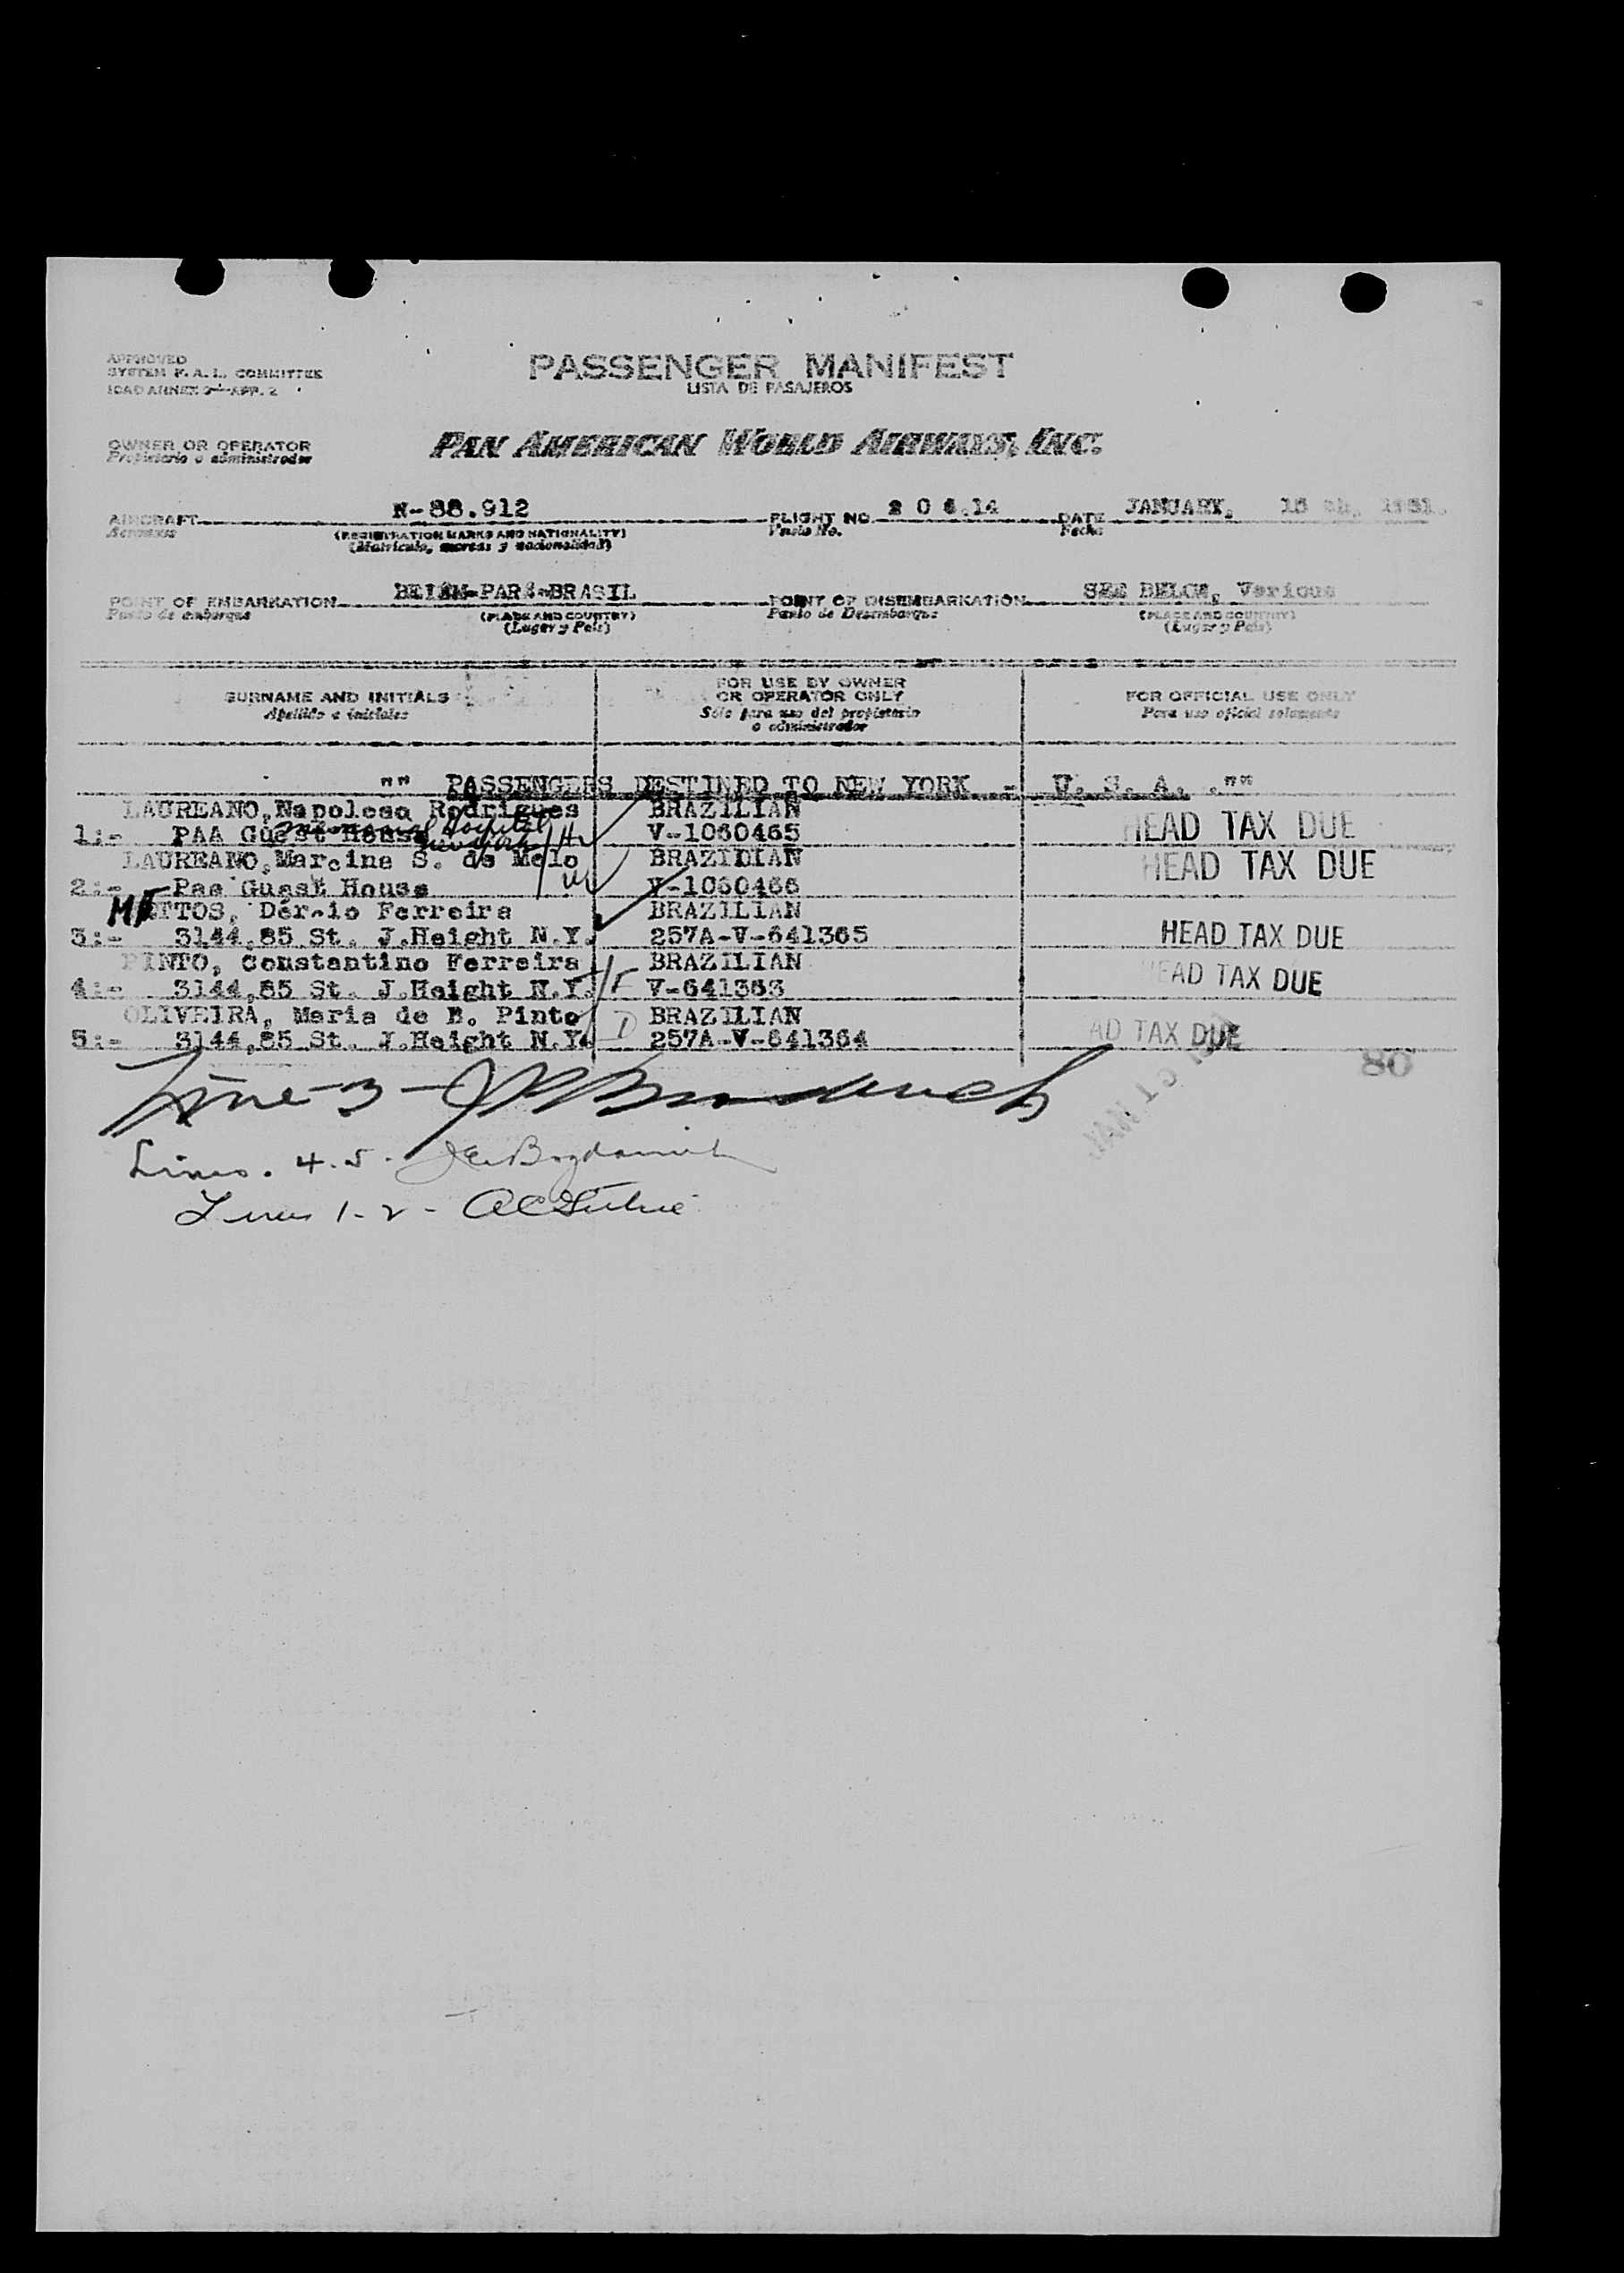 APPROVED
SYSTEM F. A. L. COMMITTEE
ICAO ANNEX 9-APP. 2
PASSENGER MANIFEST
LISTA DE PASAJEROS
OWNER OR OPERATOR
Propietario o administrador
PAN AMERICAN WORLD AIRWAYS, INC.
AIRCRAFT N-88.912 FLIGHT NO. DATE JANUARY,
Aeronave (REGISTRATION MARKS AND NATIONALITY) Vuelo No. Fecha
(Matrícula, marcas y nacionalidad)
POINT OF EMBARKATION BELÉM-PARÁ-BRASIL POINT OF DISEMBARKATION SEE BELOW, Various
Punto de embarque (PLACE AND COUNTRY) Punto de Desembarque (PLACE AND COUNTRY)
(Lugar y País) (Lugar y País)
SURNAME AND INITIALS
Apellido e iniciales
FOR USE BY OWNER
OR OPERATOR ONLY
Sólo para uso del propietario
o administrador
FOR OFFICIAL USE ONLY
Para uso oficial solamente
"" PASSENGERS DESTINED TO NEW YORK .- U. S. A. .""
LAUREANO,Napoleao Rodrigues BRAZILIAN
Memorial Hospital
New York
1:- PAA Guest House V-1060465 HEAD TAX DUE
LAUREANO,Marcina S. de Melo BRAZIDIAN HEAD TAX DUE
2:- Paa Guest House V-1060466
MATTOS, Dercio Ferreira BRAZILIAN
3:- 3144,85 St. J.Height N.Y. 257A-V-641365 HEAD TAX DUE
PINTO, Constantino Ferreira BRAZILIAN HEAD TAX DUE
4:- 3144,85 St. J.Height N.Y. V-641363
OLIVEIRA, Maria de B. Pinto BRAZILIAN AD TAX DUE
5:- 3144,85 St. J.Height N.Y. 257A-V-641364
80
Line-3-
Lines. 4.5. Bogdanovich
Lines 1-2 -